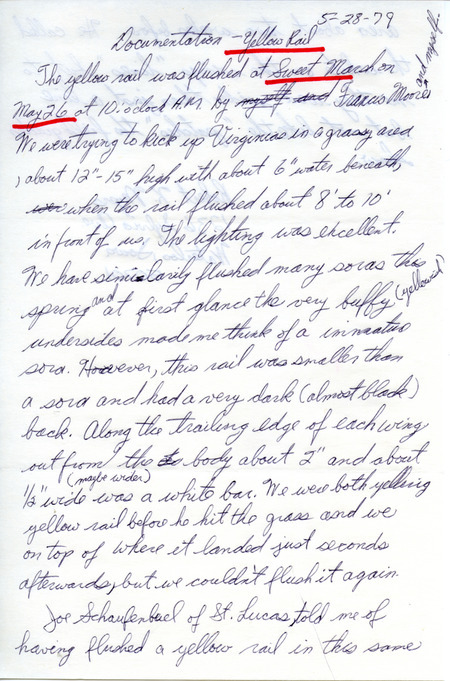 5-28-79
Documentation - Yellow Rail
The yellow rail was flushed at Sweet Marsh on
May 26 at 10 o'clock AM by myself and Francis Moore and myself.
We were trying to kick up Virginias in a grassy area
, about 12"-15" high with about 6" water beneath,
when the rail flushed about 8' to 10'
in front of us. The lighting was excellent.
We have similarly flushed many soras this
spring and at first glance the very buffy (yellowish)
undersides made me think of a immature
sora. However, this rail was smaller than
a sora and had a very dark (almost black)
back. Along the trailing edge of each wing
out from the body about 2" and about
1/2" wide (maybe wider) was a white bar. We were both yelling
yellow rail before he hit the grass and we
on top of where it landed just seconds
afterwards, but we couldn't flush it again.
Joe Schaufenbuel of St. Lucas, told me of
having flushed a yellow rail in this same